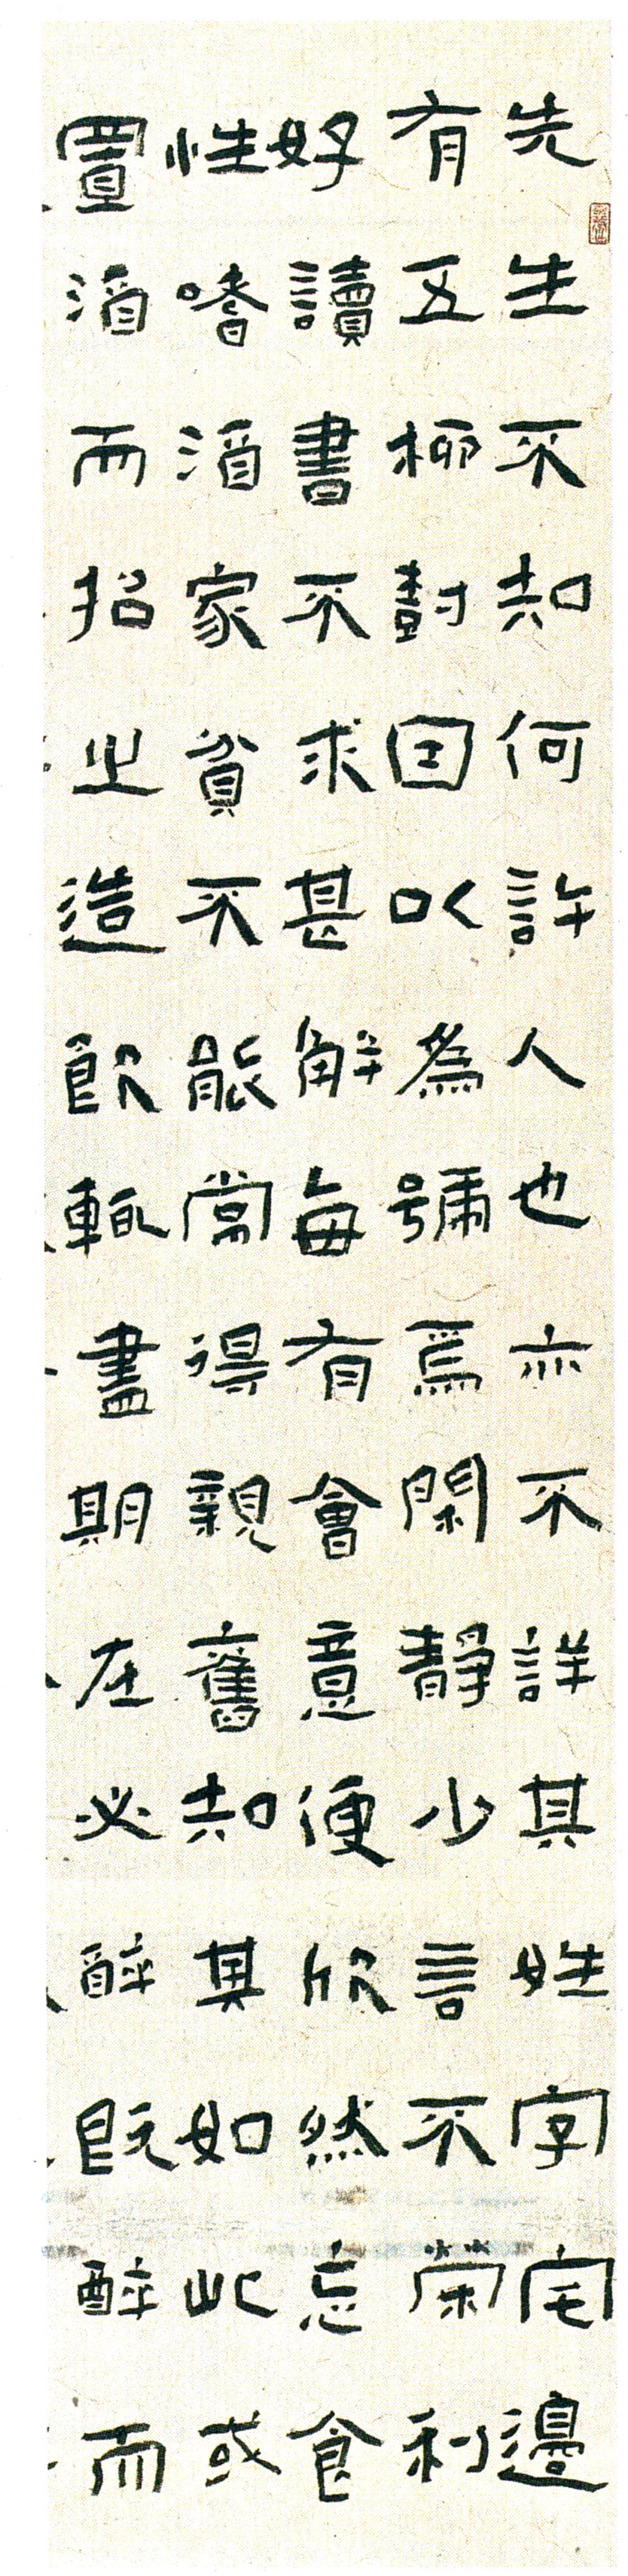 先生不知何許人也亦不詳其姓字宅邊
有五柳封回以為號焉閑靜少言不榮利
好讀書不求甚解每有會意便欣然忘食
性嗜酒家貧不能常得親舊知其如此或
置酒而招之造飲輒盡期在必醉既醉而